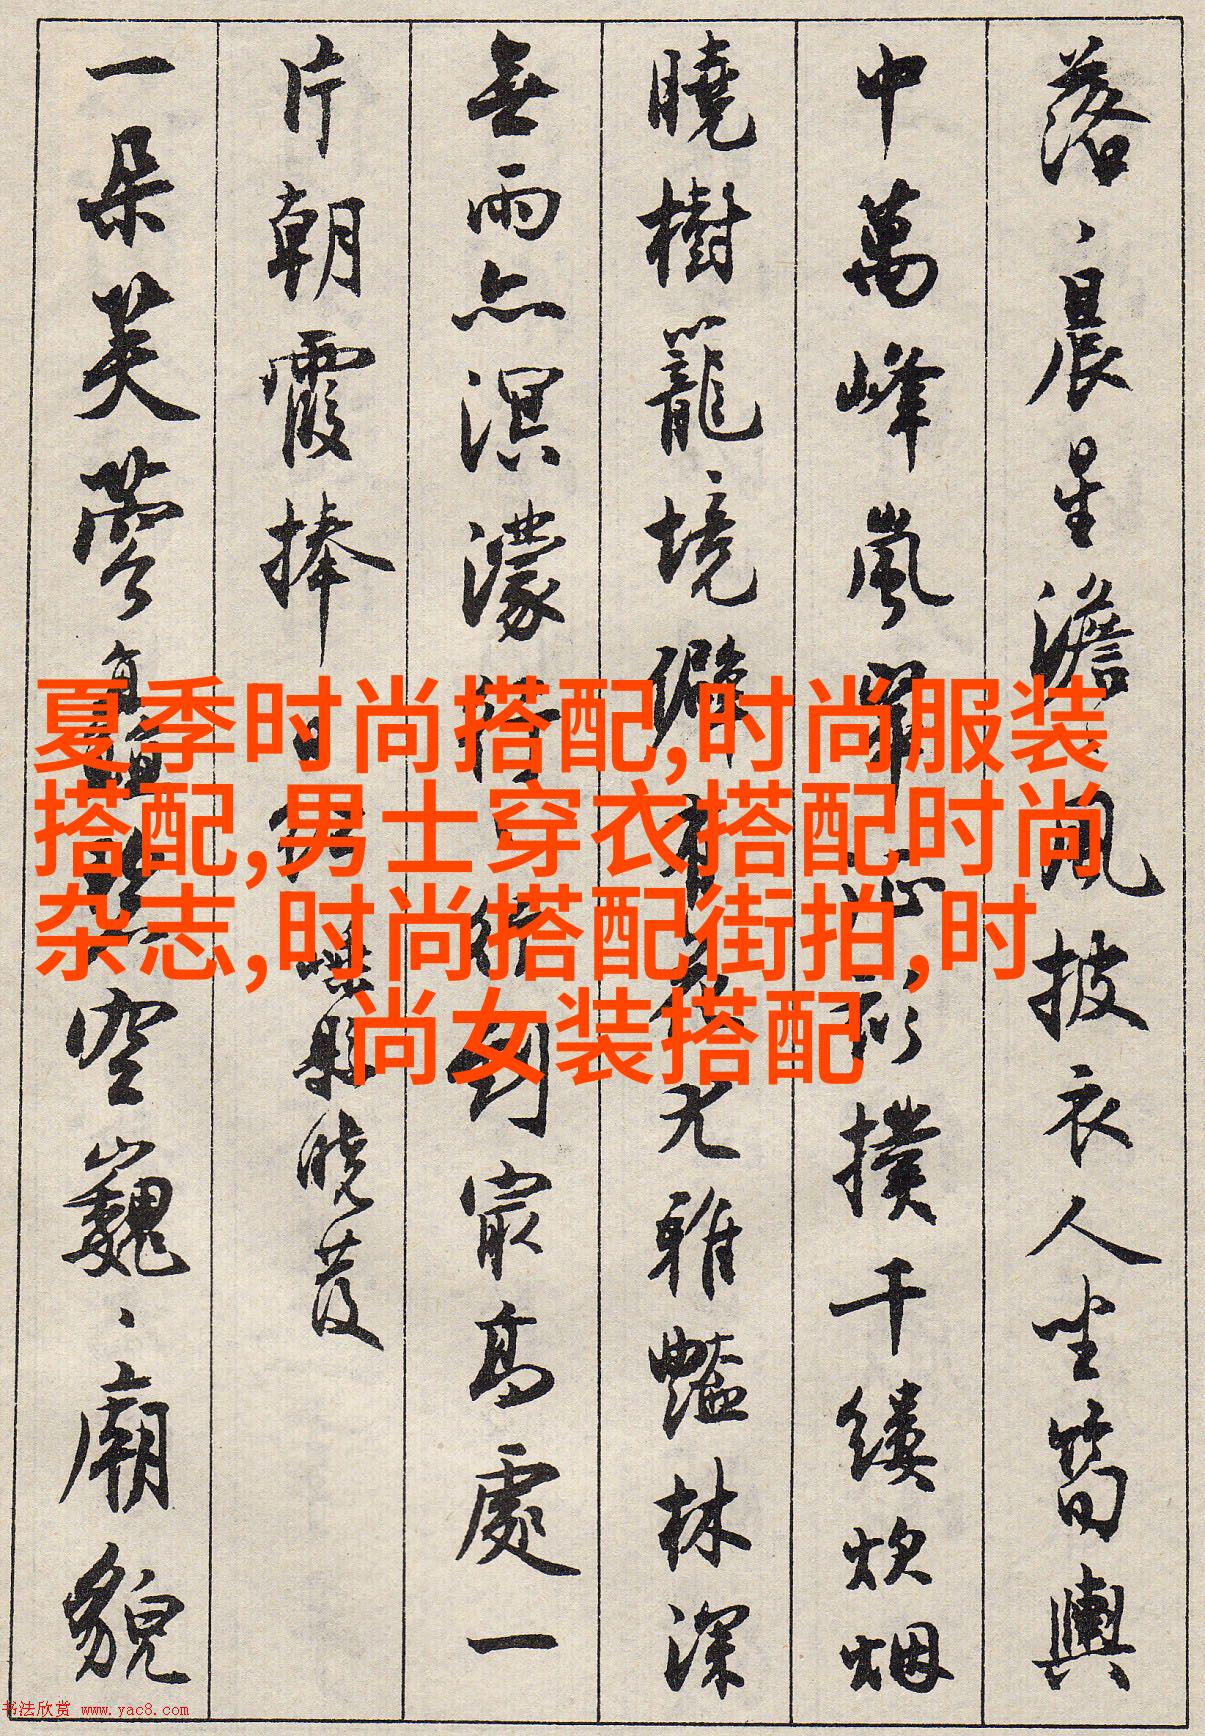 落、晨星澹、風披衣人坐筍輿
中萬峰嵐撲千縷炊烟
曉樹籠境僻尤雅豔林深
無雨亦溟濛到最高處一
片朝霞捧日縣曉發
一朵芙蓉空巍、廟貌
夏季时尚搭配,时尚服装
搭配,男士穿衣搭配时尚
杂志,时尚搭配街拍,时
尚女装搭配
书法欣赏 www.yac8.com